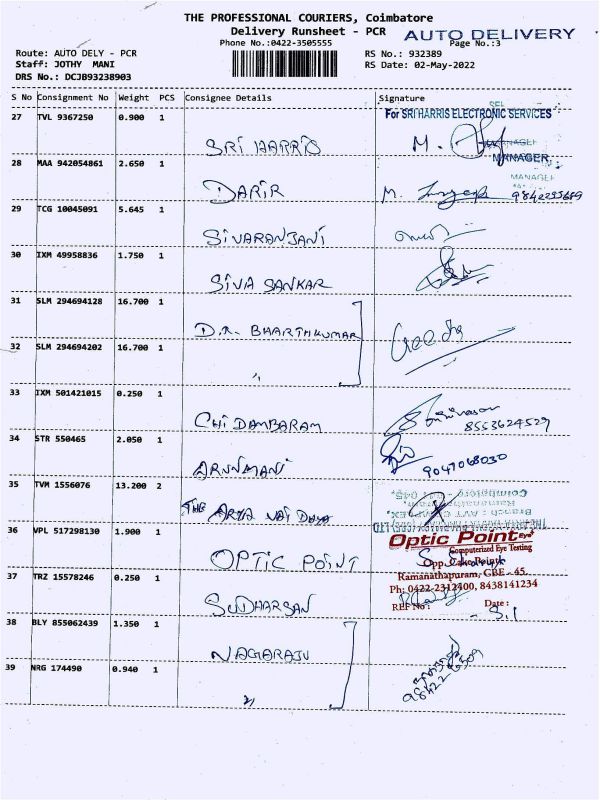 THE PROFESSIONAL COURIERS, Coimbatore
Delivery Runsheet - PCR
AUTO DELIVERY
Phone No.:0422-3505555
Page No.:3
Route: AUTO DELY - PCR
RS No.: 932389
Staff: JOTHY MANI
RS Date: 02-May-2022
DRS No.: DCJB93238903
S No Consignment No Weight PCS Consignee Details Signature
For SRI HARRIS ELECTRONIC SERVICES
27 TVL 9367250 0.900 1 SRI HARRIS M.
MANAGER
28 MAA 942054861 2.650 1 DARIR M.
MANAGER
29 TCG 10045091 5.645 1 SIVARANJANI
30 IXM 49958836 1.750 1 SIVA SANKAR
31 SLM 294694128 16.700 1 D.R. BHARTHKUMAR
32 SLM 294694202 16.700 1 "
33 IXM 501421015 0.250 1 CHIDAMBARAM
8553624529
34 STR 550465 2.050 1 ARUNMANI
9047068030
35 TVM 1556076 13.200 2 THE ARYA VAI DAYA
36 VPL 517298130 1.900 1 OPTIC POINT
Optic Point Eye+
Computerized Eye Testing
Ramanathapuram, CBE - 45.
Ph: 0422-2312400, 8438141234
REF No : Date :
37 TRZ 15578246 0.250 1 SUDHARSAN
38 BLY 855062439 1.350 1 NAGARAJU
39 NRG 174490 0.940 1 "